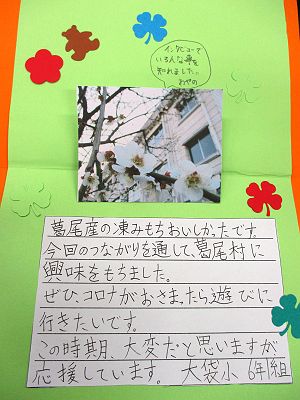 インタビューで
いろんな事を
知れました。
葛尾産の凍みもちおいしかったです。
今回のつながりを通して、葛尾村に
興味をもちました。
ぜひ、コロナがおさまったら遊びに
行きたいです。
この時期、大変だと思いますが
応援しています。 大袋小 6年1組